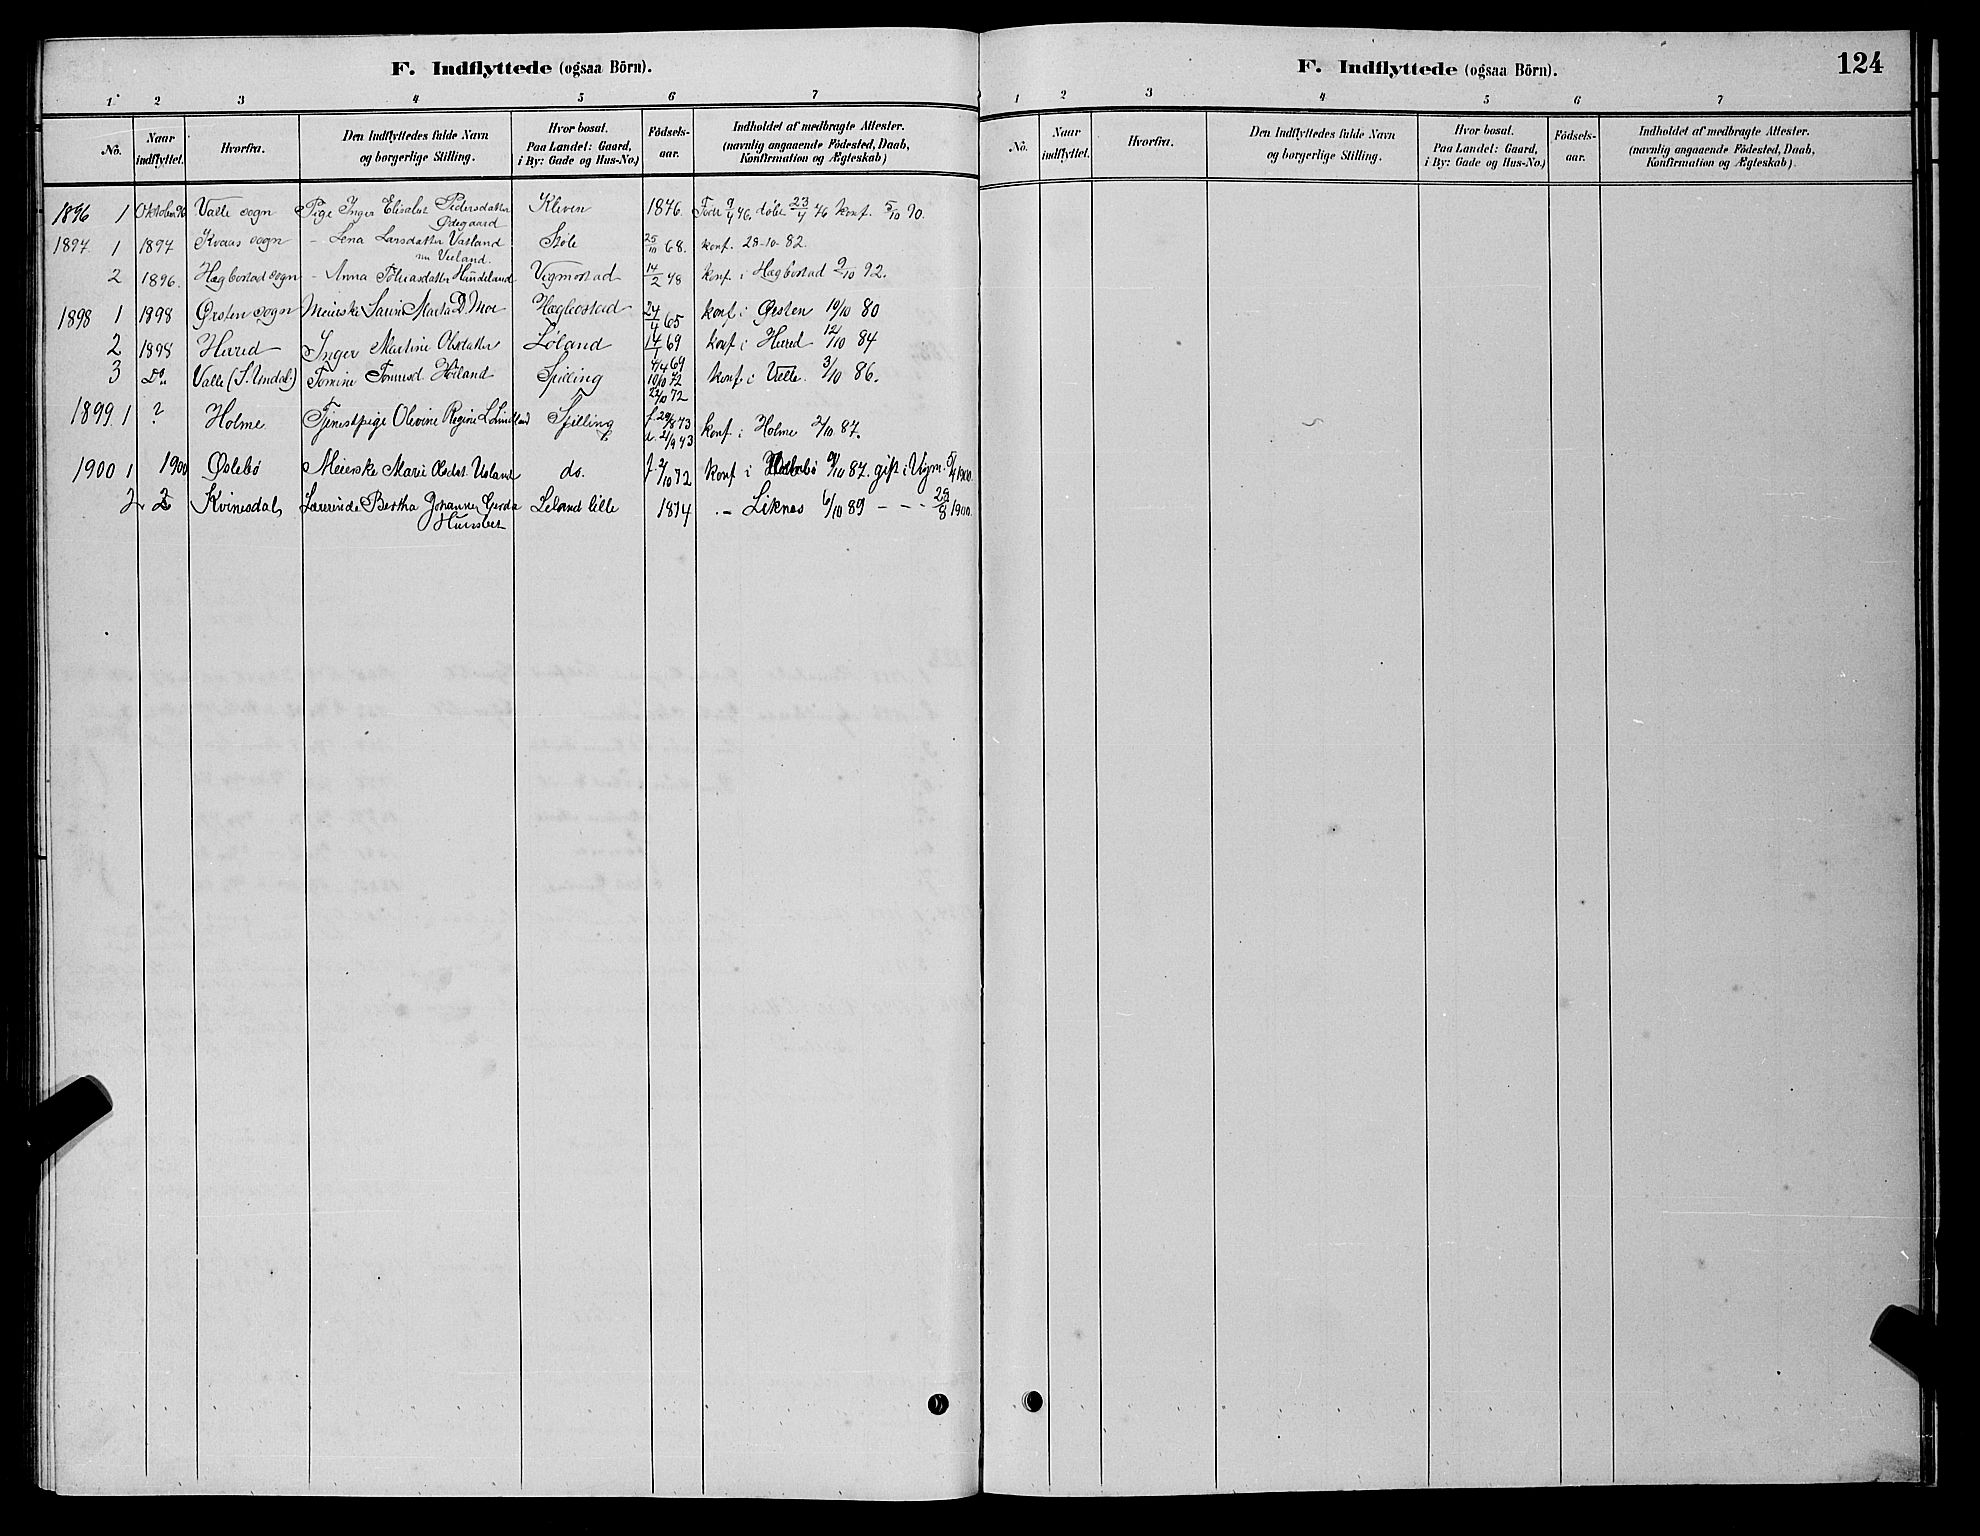 F. Indflyttede (ogsaa Börn).
1 2 3 4 5 6 7
No. Naar indflyttet. Hvorfra. Den Indflyttedes fulde Navn og borgerlige Stilling. Hvor bosat. Paa Landet: Gaard, i By: Gade og Hus-No.) Födsels-aar. Indholdet af medbragte Attester. (navnlig angaaende Födested, Daab, Konfirmation og Ægteskab)
1896 1 Oktober 96 Valle sogn Pige Inger Elisabet Pedersdatter Kleven 1876. Föde 9/4 76. döbt 23/4 76 konf. 5/10 90.
Ödegaard
1897 1 1897 Kvaas sogn - Lena Larsdatter Vatland Støle 25/10 68. konf. 28-10-82.
2 1896. Hægbostad sogn - Anna Tobiasdatter Hundeland Vigmostad 14/2 78 konf. i Hægbostad 9/10 92.
1898 1 1898 Ørsten sogn Meierske Marta D. Moe Hægbostad 24/4 65 konf i Ørsten 10/10 80
2 1898 Hared Inger Martine Olsdatter Løland 14/1 69 konf i Hared 12/10 84
3 Do. Valle (S. Undal.) Tomine Høiland Spilling konf i Valle. 3/10 86.
1899 1 ? Holme Tjenestpige Olevine Regine L. Spilling f. 29/8 73 konf i Holme 2/10 87.
1900 1 1900 Øslebö Meierske Marie Olsdat. Usland do. f. 2/10 72 konf i 9/10 87. gift i Vigm. 1900.
2 2 Kvinesdal Lærerinde Bertha Johanne Gerda Leland lille 1874 .- Liknes 6/10 89 - - - 29/8 1900.
F. Indflyttede (ogsaa Börn). 124
1 2 3 4 5 6 7
No. Naar indflyttet. Hvorfra. Den Indflyttedes fulde Navn og borgerlige Stilling. Hvor bosat. Paa Landet: Gaard, i By: Gade og Hus-No.) Födsels-aar. Indholdet af medbragte Attester. (navnlig angaaende Födested, Daab, Konfirmation og Ægteskab)